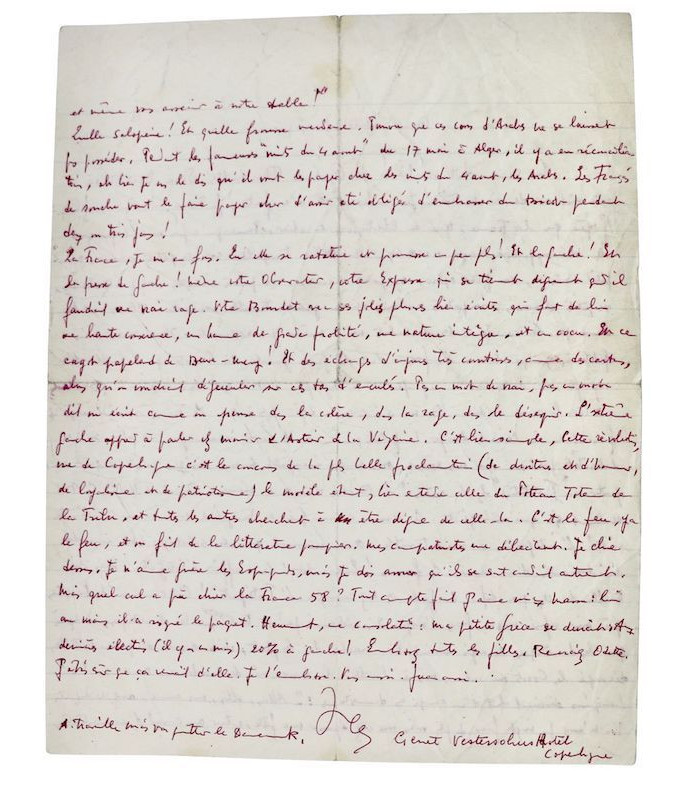 et même vous asseoir à notre table !"
Quelle saloperie ! Et quelle frousse merdeuse. Pourvu que ces cons d'Arabes ne se laissent
pas posséder. Pendant les fameuses "nuits du 4 aout" du 17 mai à Alger, il y a eu réconcilia-
tion, eh bien je vous le dis qu'ils vont les payer cher les nuits du 4 aout, les Arabes. Les Français
de souche vont le faire payer cher d'avoir été obligés d'embrasser du bicot pendant
deux ou trois jours !
La France, je m'en fous. Qu'elle se ratatine et pourrisse un peu plus ! Et la gauche ! Et
la presse de gauche ! Même votre Observateur, votre Express qui se tiennent dignement quand il
faudrait une vraie rage. Votre Bourdet avec ses jolies phrases bien écrites qui font de lui
une haute conscience, un homme de grande probité, une nature intègre, et un cocu. Et ce
cagot papelard de Beuve-Mery ! Et des échanges d'injures très courtoises, comme des cartes,
alors qu'on voudrait dégueuler sur ces tas d'enculés. Pas un mot de vrai, pas un mot
dit ou écrit comme on pense dans la colère, dans la rage, dans le désespoir. L'extrême
gauche apprend à parler chez monsieur d'Astier de la Vigerie. C'est bien simple, cette révolution,
vue de Copenhague c'est le concours de la plus belle proclamation (de droiture et d'honneur,
de loyalisme et de patriotisme) le modèle étant, bien entendu celle du Poteau Totem de
la Tribu, et toutes les autres cherchent à être digne de celle-là. C'est le feu, y a
le feu, et on fait de la littérature pompier. Mes compatriotes me débectent. Je chie
dessus. Je n'aime guère les Espagnols, mais je dois avouer qu'ils se sont conduit autrement.
Mais quel cul a pu chier la France 58 ? Tout compte fait j'aime mieux : lui
au moins il a risqué le paquet. Heureusement, une consolation : ma petite Grèce se aux
dernières élections (il y a un mois) 20% à gauche ! Embrassez toutes les filles. Remerciez Odette.
je l'embrasse. Vous aussi. Java aussi.
A. travaille mais veut quitter le Danemark.
Genet Vestersohus Hotel
Copenhague